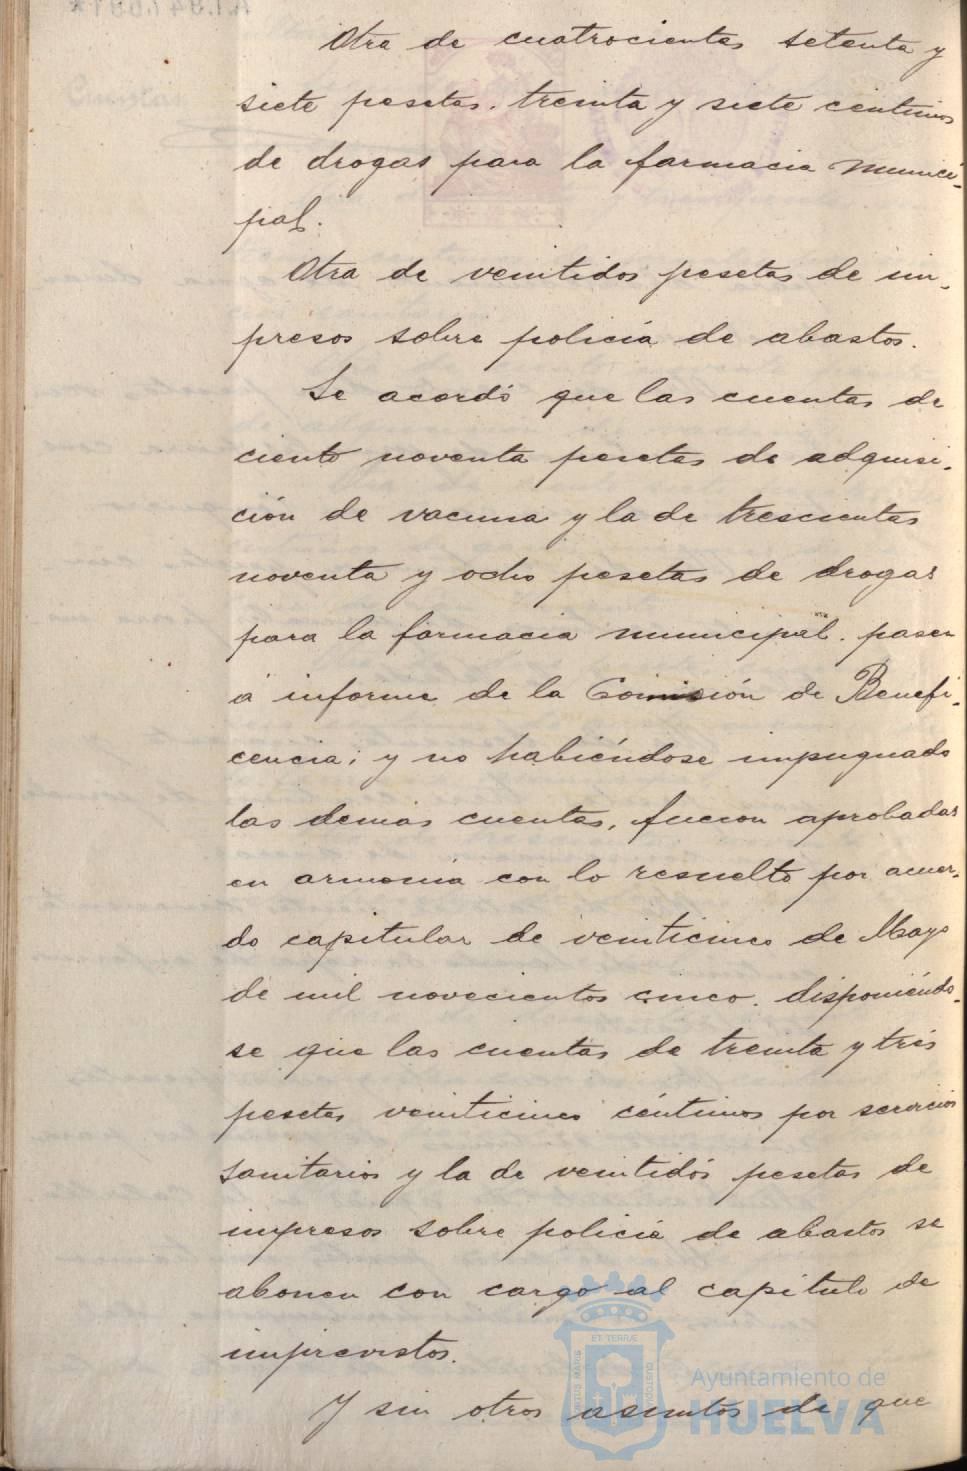 Otra de cuatrocientas setenta y
siete pesetas. treinta y siete centimos
de drogas para la farmacia munici-
pal.
Otra de veintidos pesetas de im-
presos sobre policía de abastos.
Se acordó que las cuentas de
ciento noventa pesetas de adquisi-
ción de vacuna y la de trescientas
noventa y ocho pesetas de drogas
para la farmacia municipal. pasen
á informe de la Comisión de Benefi-
cencia; y no habiéndose impugnado
las demas cuentas, fueron aprobadas
en armonía con lo resuelto por acuer-
do capitular de veinticinco de Mayo
de mil novecientos cinco. disponiéndo-
se que las cuentas de treinta y trés
pesetas veinticinco céntimos por servicios
sanitarios y la de veintidós pesetas de
impresos sobre policía de abastos se
abonen con cargo al capitulo de
imprevistos.
Y sin otros asuntos de que
ET TERRÆ
PORTUS MARIS
CUSTODIA
Ayuntamiento de
HUELVA